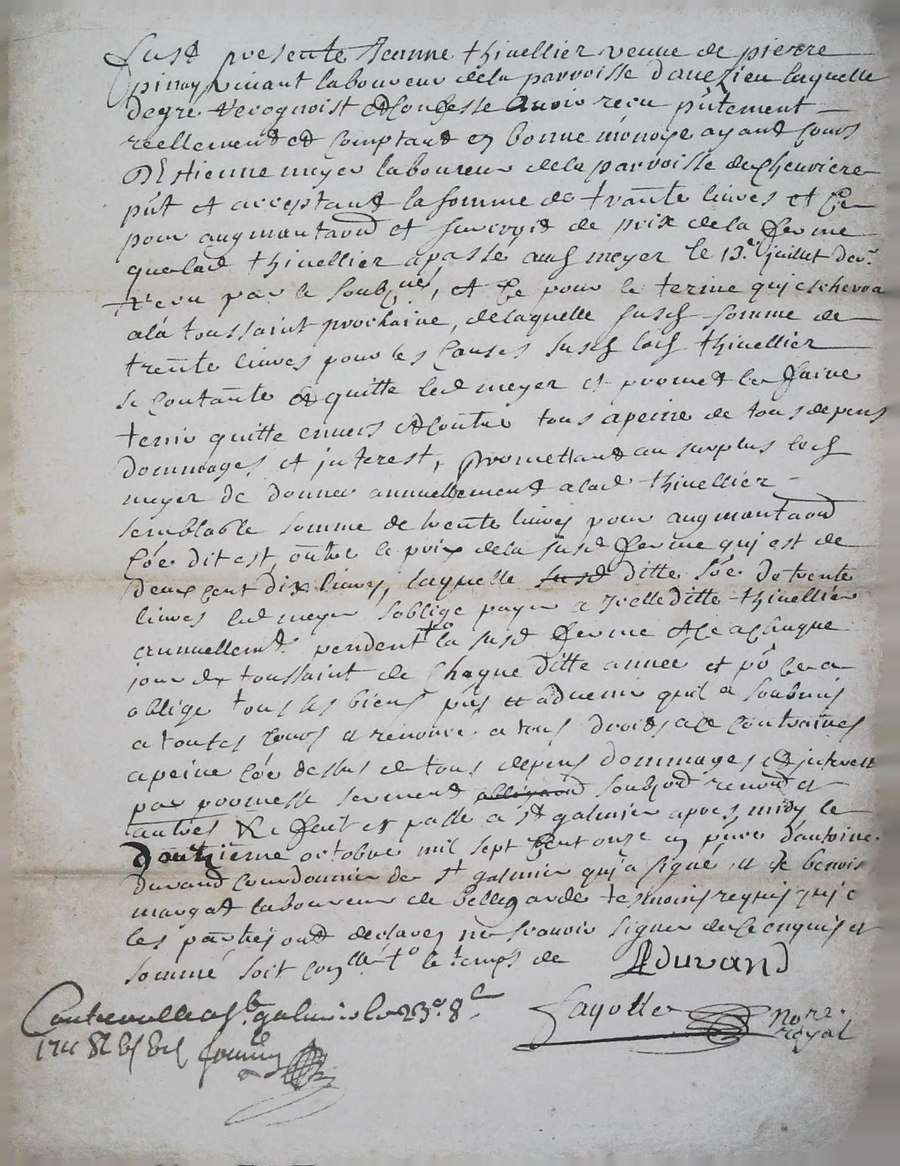 fust presente Jeanne thivellier veuve de pierre
pinay vivant laboureur de la parroisse d'avezieu laquelle
de gre recognoist et confesse avoir receu pñtement
reellement et comptant en bonne monoye ayant cours
D'Estienne meyer laboureur de la parroisse de chevriere
pñt et acceptant la somme de trante livres et ce
pour augmantaõn et surcroit de prix de la ferme
que lad thivellier a passé aud meyer le 13.e juillet der.
receu par le soubnẽ, et ce pour le terme qui eschevra
a la toussaint prochaine, de laquelle susd somme de
trente livres pour les causes susd lad thivellier
se contante et quitte led meyer et promet le faire
tenir quitte envers et contre tous a peine de tous depens
dommages et interest, promettant au surplus led
meyer de donner annuellement a lad thivellier
semblable somme de trente livres pour augmantaõn
cõe dit est, outre le prix de la susd ferme qui est de
deux cent dix livres, laquelle susd ditte sõe de trente
livres led meyer s'oblige payer a icelle ditte thivellier
annuellemt. pendent la susd ferme et ce a chaque
jour de toussaint de chaque ditte annee et po ce a
oblige tous ses biens pñs et advenir qu'il a soubmis
a toutes cours et renoncé a tous droits a ce contraires
a peine cõe dessus de tous depens dommages et interest
par promesse serment obligaõn soubzõn renonõn et
autres &c fait et passé a st galmier apres midy le
douzieme octobre mil sept cent onze en pñce d'antoine
durand cordonnier de st galmier qui a signé et de benoit
margat laboureur de bellegarde tesmoins requis qui e
les parties ont declarez ne scavoir signer de ce enquis et
sommé soit conllé to le temps de
ADurand
fayolle nore. royal
Controollé a st. galmier le 23e 8e
1711